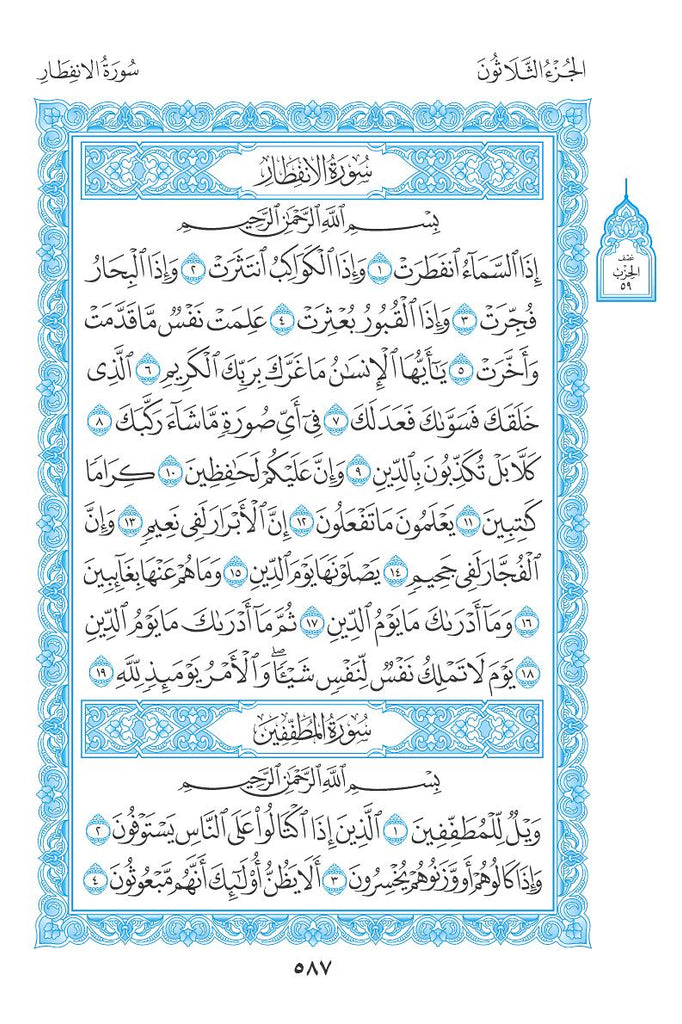 الجُزْءُ الثَّلَاثُونَ
سُورَةُ الِانفِطَارِ
سُورَةُ الِانفِطَارِ
بِسْمِ اللَّهِ الرَّحْمَٰنِ الرَّحِيمِ
إِذَا ٱلسَّمَآءُ ٱنفَطَرَتْ ١ وَإِذَا ٱلْكَوَاكِبُ ٱنتَثَرَتْ ٢ وَإِذَا ٱلْبِحَارُ
فُجِّرَتْ ٣ وَإِذَا ٱلْقُبُورُ بُعْثِرَتْ ٤ عَلِمَتْ نَفْسٌ مَّا قَدَّمَتْ
وَأَخَّرَتْ ٥ يَٰٓأَيُّهَا ٱلْإِنسَٰنُ مَا غَرَّكَ بِرَبِّكَ ٱلْكَرِيمِ ٦ ٱلَّذِى
خَلَقَكَ فَسَوَّىٰكَ فَعَدَلَكَ ٧ فِىٓ أَىِّ صُورَةٍ مَّا شَآءَ رَكَّبَكَ ٨
كَلَّا بَلْ تُكَذِّبُونَ بِٱلدِّينِ ٩ وَإِنَّ عَلَيْكُمْ لَحَٰفِظِينَ ١٠ كِرَامًا
كَٰتِبِينَ ١١ يَعْلَمُونَ مَا تَفْعَلُونَ ١٢ إِنَّ ٱلْأَبْرَارَ لَفِى نَعِيمٍ ١٣ وَإِنَّ
ٱلْفُجَّارَ لَفِى جَحِيمٍ ١٤ يَصْلَوْنَهَا يَوْمَ ٱلدِّينِ ١٥ وَمَا هُمْ عَنْهَا بِغَآئِبِينَ
١٦ وَمَآ أَدْرَىٰكَ مَا يَوْمُ ٱلدِّينِ ١٧ ثُمَّ مَآ أَدْرَىٰكَ مَا يَوْمُ ٱلدِّينِ
١٨ يَوْمَ لَا تَمْلِكُ نَفْسٌ لِّنَفْسٍ شَيْـًٔا ۖ وَٱلْأَمْرُ يَوْمَئِذٍ لِّلَّهِ ١٩
سُورَةُ المُطَفِّفِينَ
بِسْمِ اللَّهِ الرَّحْمَٰنِ الرَّحِيمِ
وَيْلٌ لِّلْمُطَفِّفِينَ ١ ٱلَّذِينَ إِذَا ٱكْتَالُوا۟ عَلَى ٱلنَّاسِ يَسْتَوْفُونَ ٢
وَإِذَا كَالُوهُمْ أَو وَّزَنُوهُمْ يُخْسِرُونَ ٣ أَلَا يَظُنُّ أُو۟لَٰٓئِكَ أَنَّهُم مَّبْعُوثُونَ ٤
نصف
الحِزْبُ
٥٩
٥٨٧